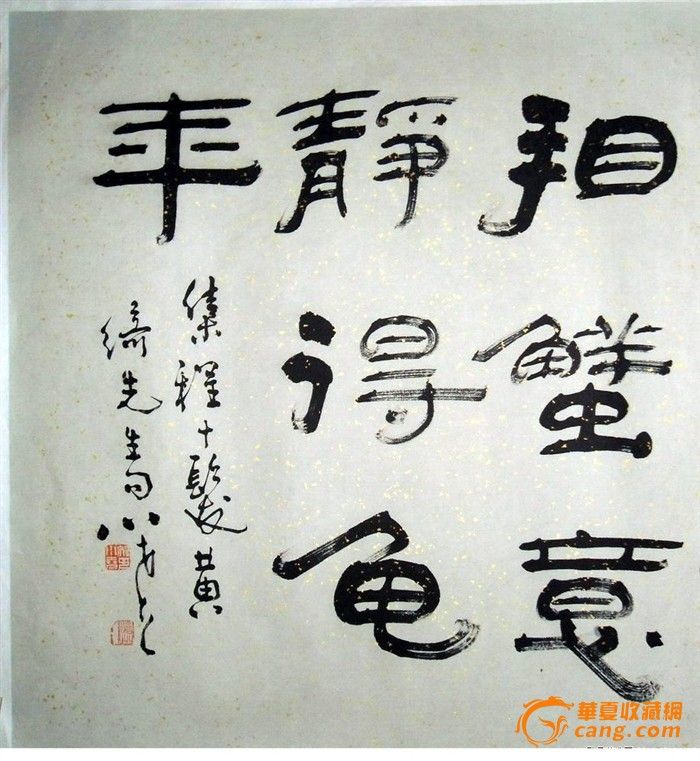 相蟹意
靜得龟
年
集程十髮黄
綺先生句
華夏收藏網
cang.com